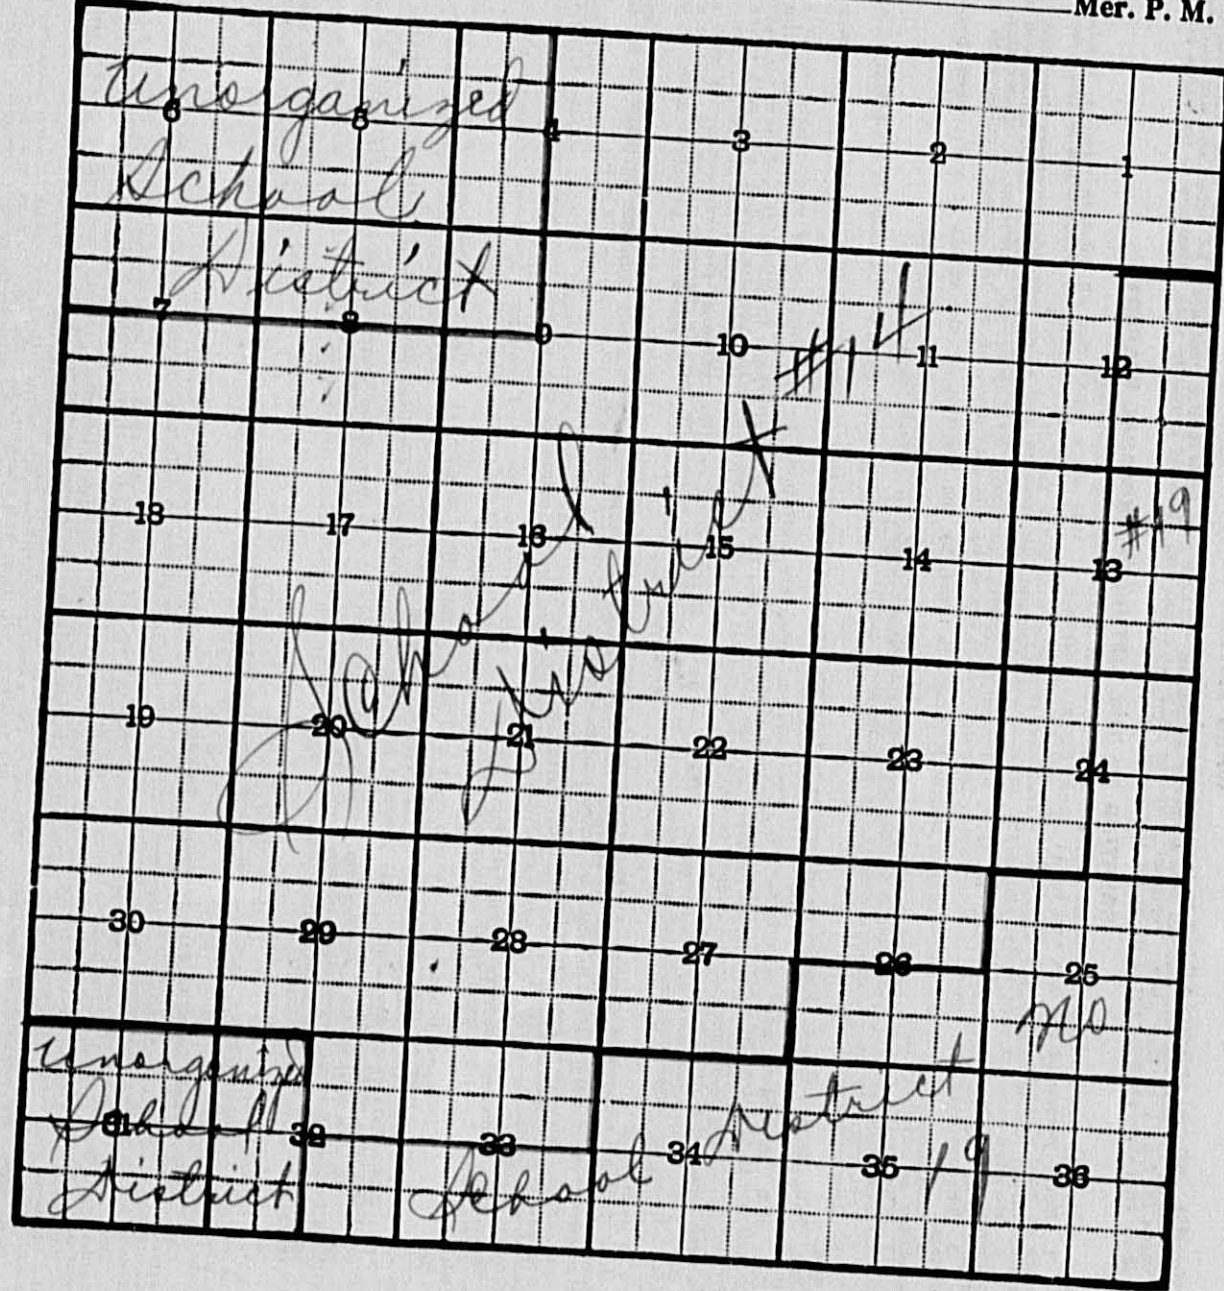 Mer. P. M.
Unorganized
6 5 4 3 2 1
School
District
7 8 9 10 #14 11 12
18 17 16 15 14 13 #19
School District
19 20 21 22 23 24
30 29 28 27 26 25
No
Unorganized
School
District
31 32 33 34 35 36
School District 19